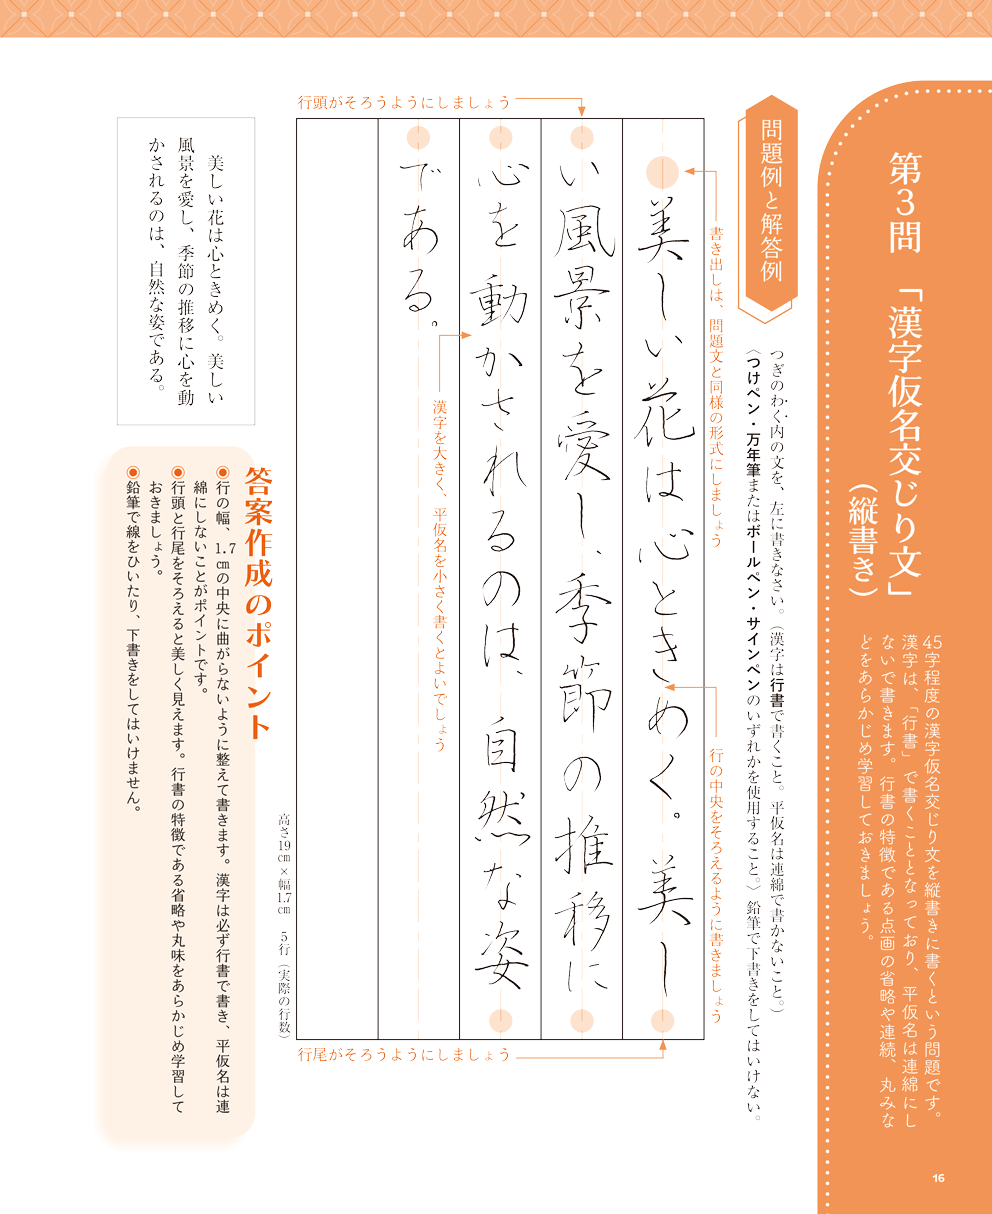 第3問 「漢字仮名交じり文」
（縦書き）
45字程度の漢字仮名交じり文を縦書きに書くという問題です。
漢字は、「行書」で書くこととなっており、平仮名は連綿にし
ないで書きます。行書の特徴である点画の省略や連続、丸みな
どをあらかじめ学習しておきましょう。
問題例と解答例
つぎのわく内の文を、左に書きなさい。（漢字は行書で書くこと。平仮名は連綿で書かないこと。）
〈つけペン・万年筆またはボールペン・サインペンのいずれかを使用すること。〉鉛筆で下書きをしてはいけない。
書き出しは、問題文と同様の形式にしましょう
行の中央をそろえるように書きましょう
行頭がそろうようにしましょう
美しい花は心ときめく。美し
い風景を愛し、季節の推移に
心を動かされるのは、自然な姿
である。
漢字を大きく、平仮名を小さく書くとよいでしょう
行尾がそろうようにしましょう
高さ19㎝×幅1.7㎝ 5行（実際の行数）
美しい花は心ときめく。美しい
風景を愛し、季節の推移に心を動
かされるのは、自然な姿である。
答案作成のポイント
◉行の幅、1.7㎝の中央に曲がらないように整えて書きます。漢字は必ず行書で書き、平仮名は連
綿にしないことがポイントです。
◉行頭と行尾をそろえると美しく見えます。行書の特徴である省略や丸味をあらかじめ学習して
おきましょう。
◉鉛筆で線をひいたり、下書きをしてはいけません。
16